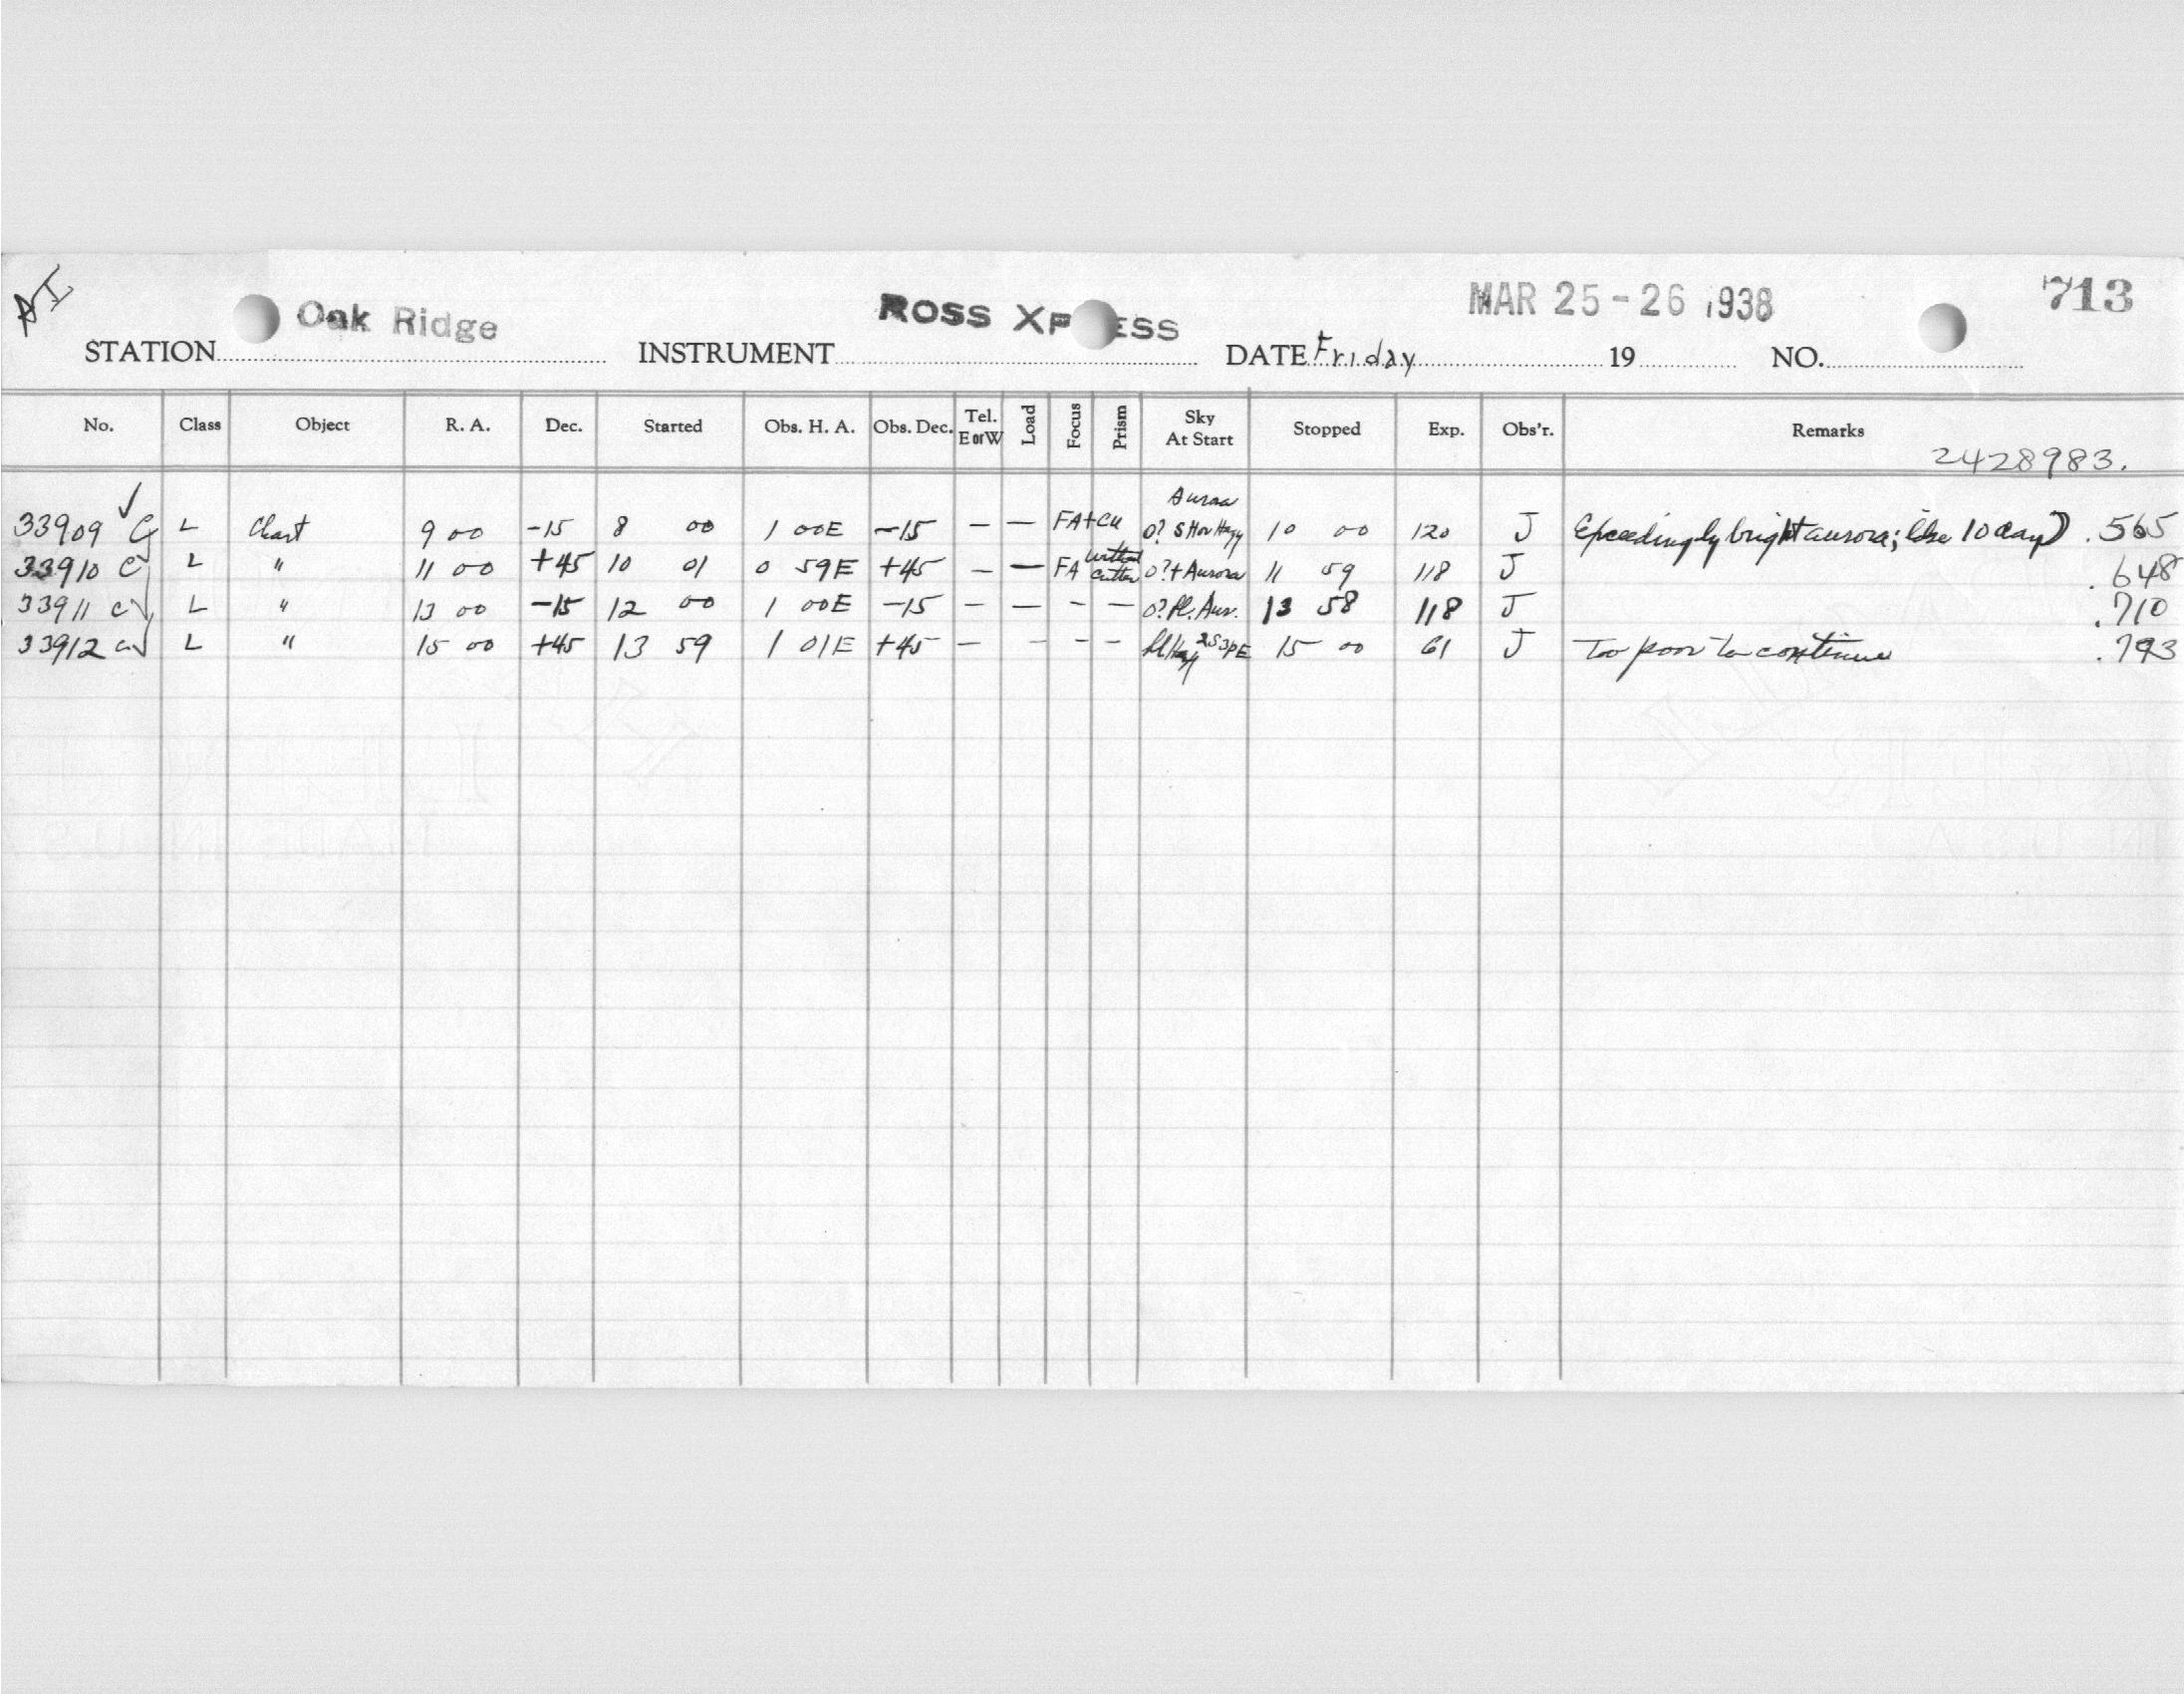 AI
Oak Ridge ROSS XPRESS MAR 25-26 1938 713
STATION INSTRUMENT DATE Friday 19 NO.
No. Class Object R. A. Dec. Started Obs. H. A. Obs. Dec. Tel. E or W Load Focus Prism Sky At Start Stopped Exp. Obs'r. Remarks
2428983.
Aurora
33909 L Chart 9 00 -15 8 00 1 00E -15 — — FA+Cu 0? S Hor Hazy 10 00 120 J Exceedingly bright aurora; like 10 day) .565
33910 C L " 11 00 +45 10 01 0 59E +45 — — FA without cutter 0?+Aurora 11 59 118 J .648
33911 C L " 13 00 -15 12 00 1 00E -15 — — - — 0? Aur. 13 58 118 J .710
33912 L " 15 00 +45 13 59 1 01E +45 — - - — Hazy 15 00 61 J Too poor to continue .793